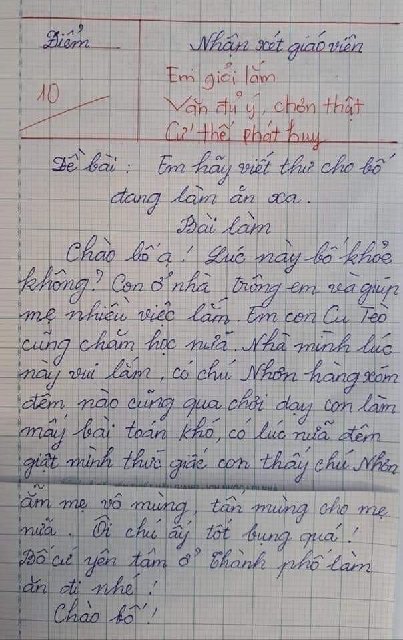 Điểm
Nhận xét giáo viên
10
Em giỏi lắm
Văn đủ ý, chơn thật
Cứ thế phát huy
Đề bài : Em hãy viết thư cho bố
đang làm ăn xa.
Bài làm
Chào bố ạ ! Lúc này bố khỏe
không? Con ở nhà trông em và giúp
mẹ nhiều việc lắm. Em con Cu Tèo
cũng chăm học nữa. Nhà mình lúc
này vui lắm, có chú Nhơn hàng xóm
đêm nào cũng qua chơi dạy con làm
mấy bài toán khó, có lúc nữa đêm
giật mình thức giấc con thấy chú Nhơn
ẵm mẹ vô mùng, tấn mùng cho mẹ
nữa. Ôi chú ấy tốt bụng quá!
Bố cứ yên tâm ở Thành phố làm
ăn đi nhé !
Chào bố !